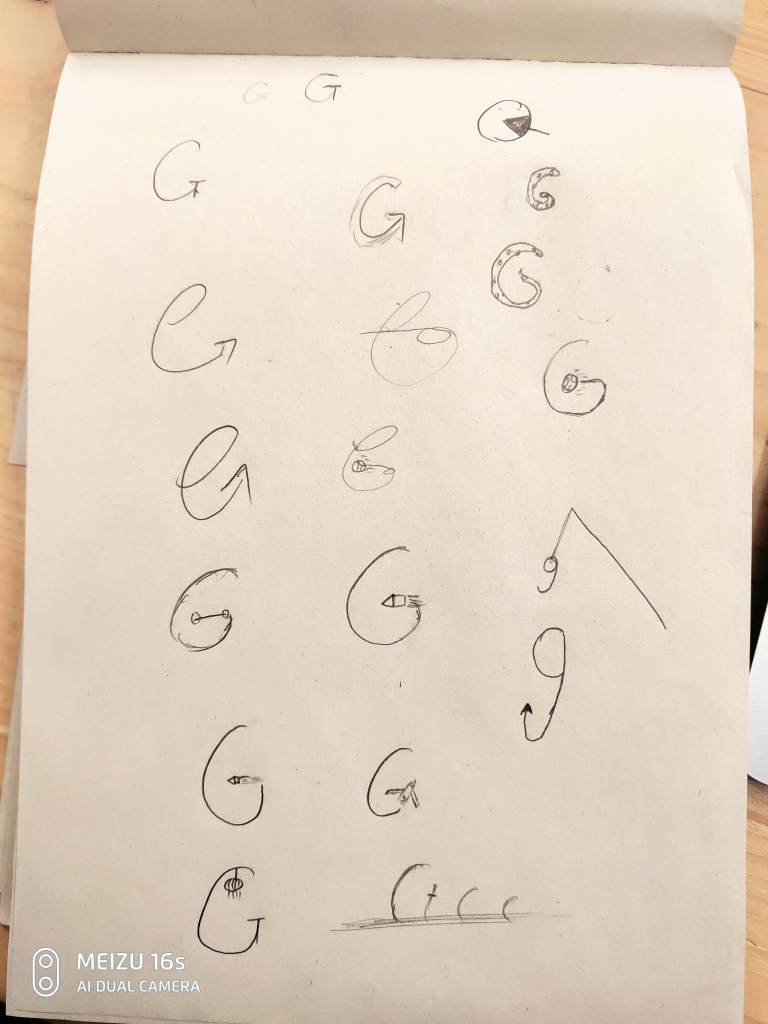 G G
G
G
G
G
G
G
G
G
G
G
g
g
G
G
G
MEIZU 16s
AI DUAL CAMERA